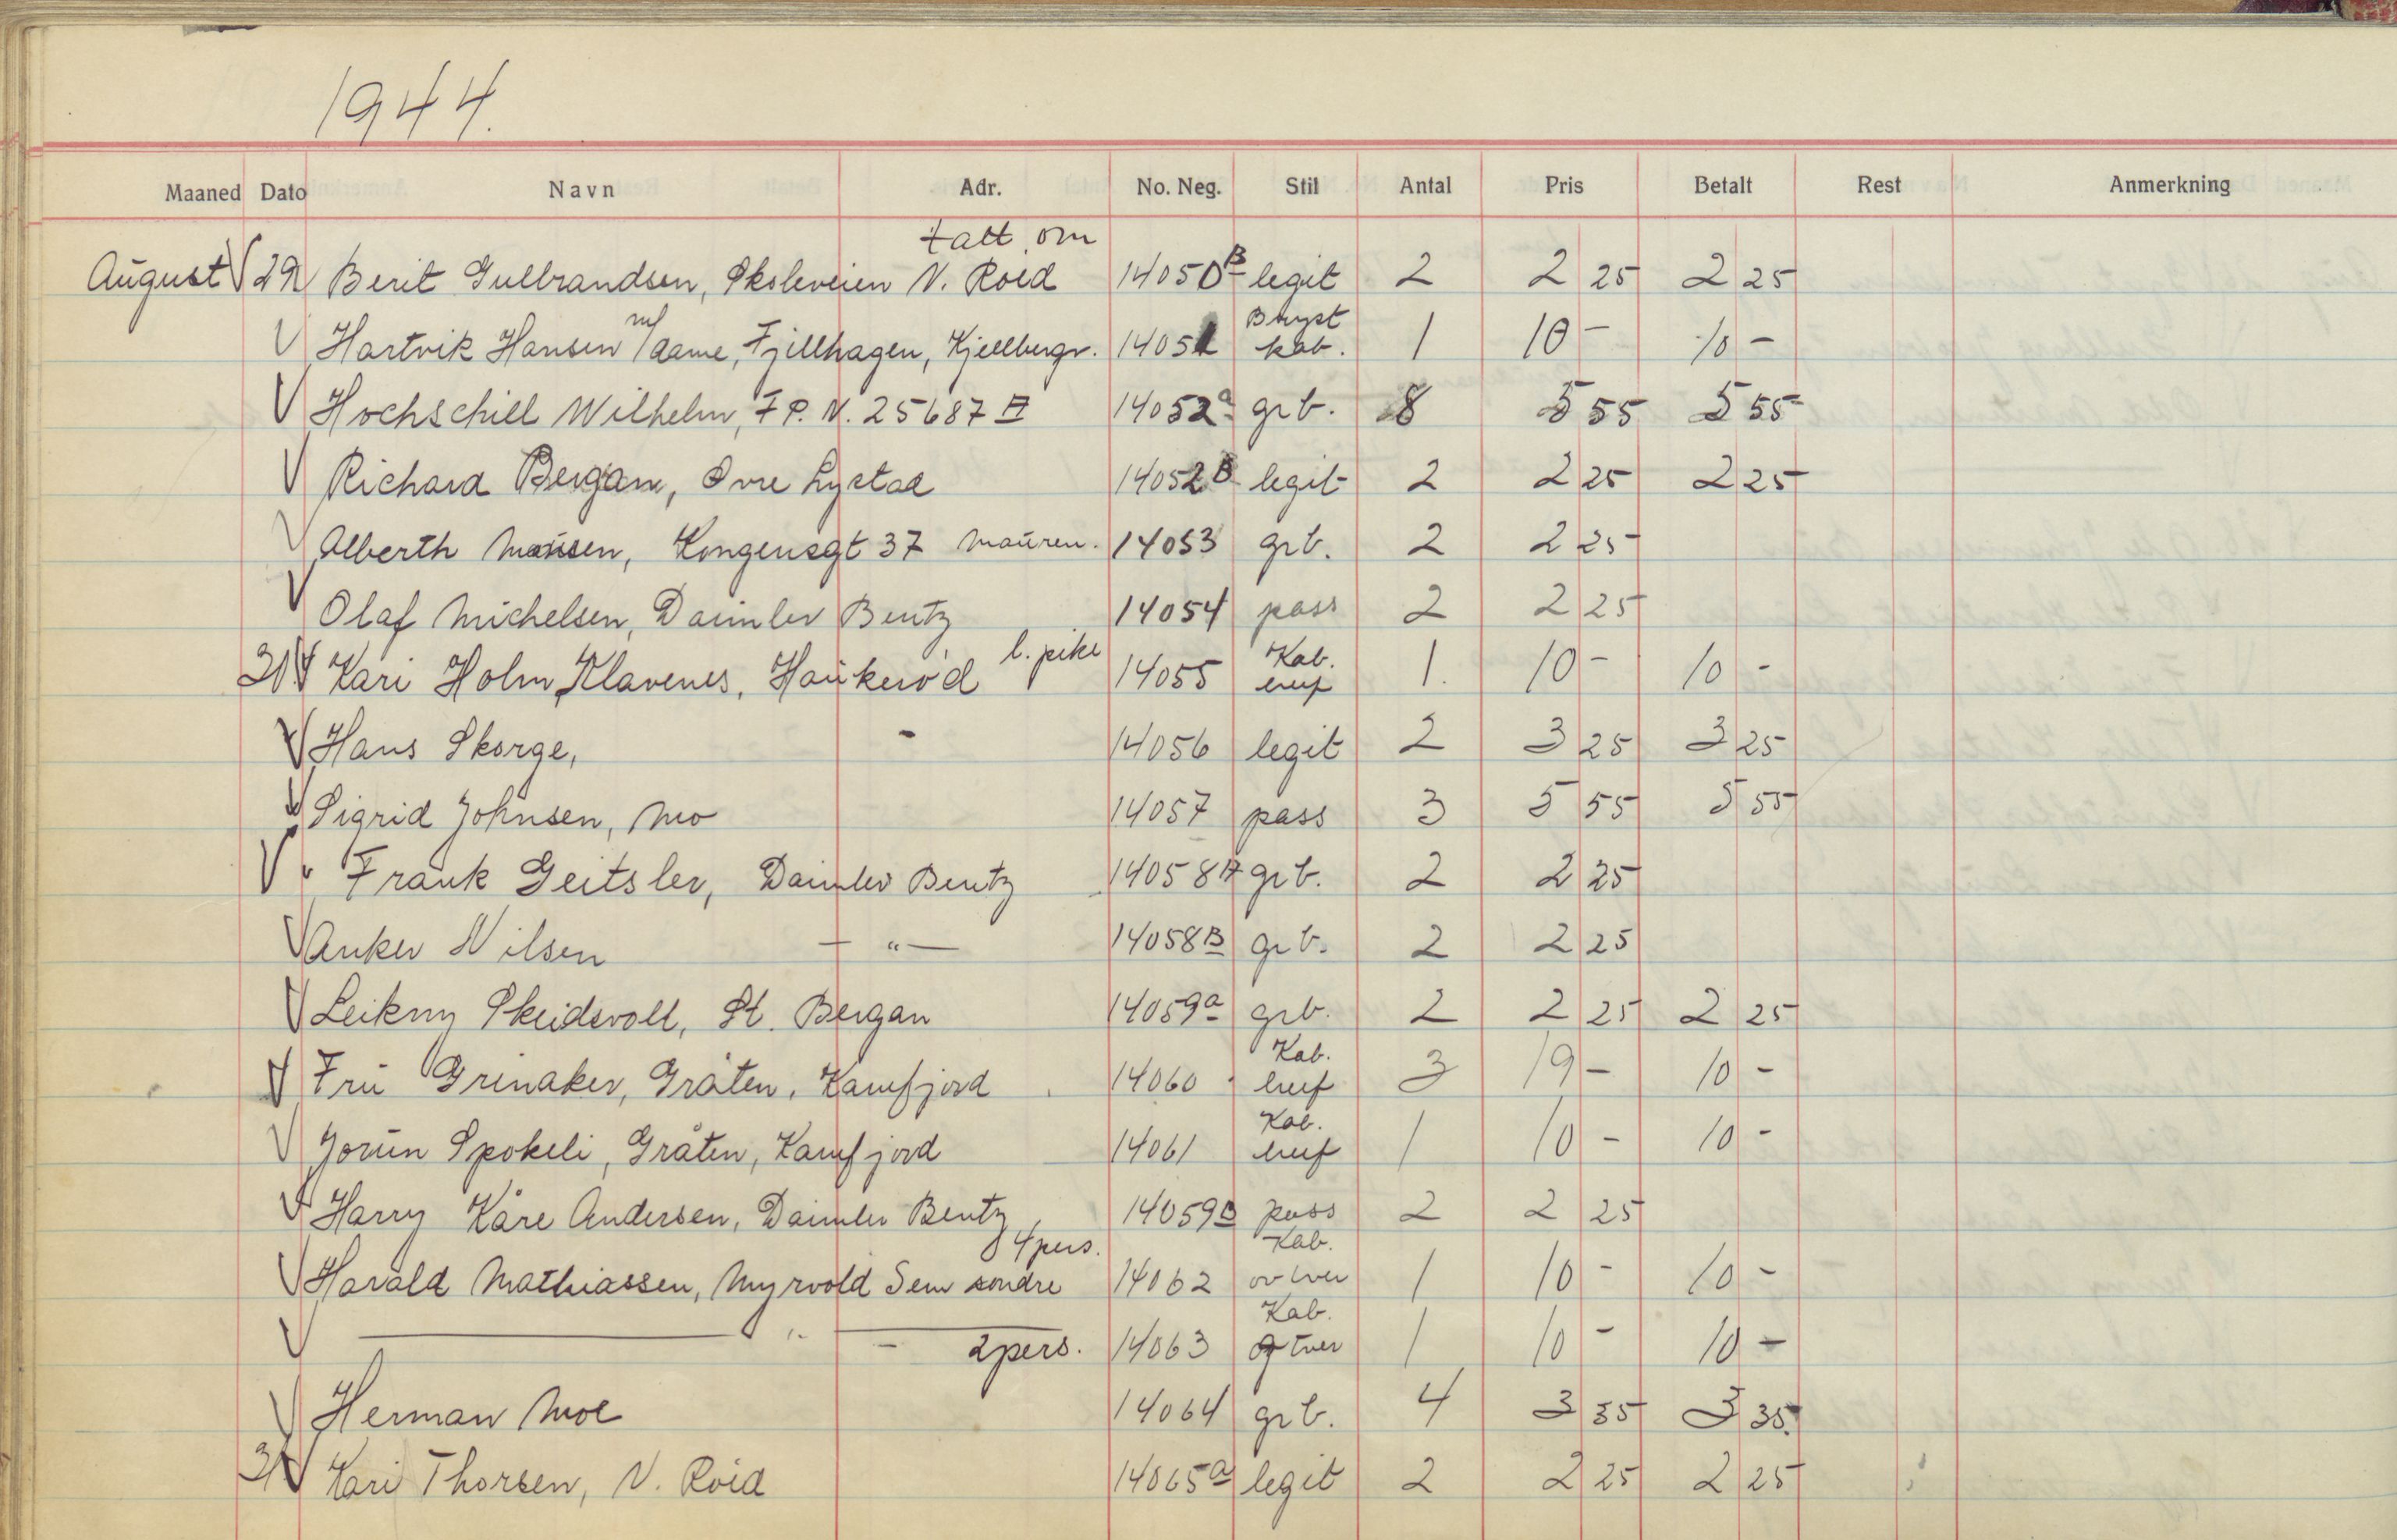 1944.
Maaned Dato Navn Adr. No. Neg. Stil Antal Pris Betalt Rest Anmerkning
tatt om
August 29 Berit Gulbrandsen, Skoleveien N. Roid 14050B legit 2 2 25 2 25
m/ Bryst
Hartvik Hansen Dame, Fjellhagen, Kjellbergv. 14051 kab. 1 10 - 10 -
Hochschill Wilhelm, F P. N. 25687 14052a grb. 8 5 55 5 55
Richard Bergan, Øvre Lystad 14052B legit 2 2 25 2 25
Alberth Monsen, Kongensgt 37 mauren. 14053 grb. 2 2 25
Olaf Michelsen, Daimler Bentz 14054 pass 2 2 25
l. pike Kab.
31 Kari Holm Klavenes, Haukerød 14055 luf 1. 10 - 10 -
Hans Skorge, - 14056 legit 2 3 25 3 25
Sigrid Johnsen, Mo 14057 pass 3 5 55 5 55
" Frank Geitsler, Daimler Bentz 14058A grb. 2 2 25
Anker Nilsen — " — 14058B grb. 2 2 25
Leikny Skeidsvoll, St. Bergan 14059a grb. 2 2 25 2 25
Kab.
Fru Grinaker, Gråten, Kamfjord 14060 luf 3 19 - 10 -
Kab.
Jorun Spokeli, Gråten, Kamfjord 14061 luf 1 10 - 10 -
Harry Kåre Andersen, Daimler Bentz 14059B pass 2 2 25
4 pers. Kab.
Harald Mathiassen, Myrvold Sem søndre 14062 1 10 - 10 -
Kab.
— " — - 2 pers. 14063 1 10 - 10 -
Herman Moe 14064 grb. 4 3 35 3 35
31 Kari Thorsen, N. Roid 14065a legit 2 2 25 2 25